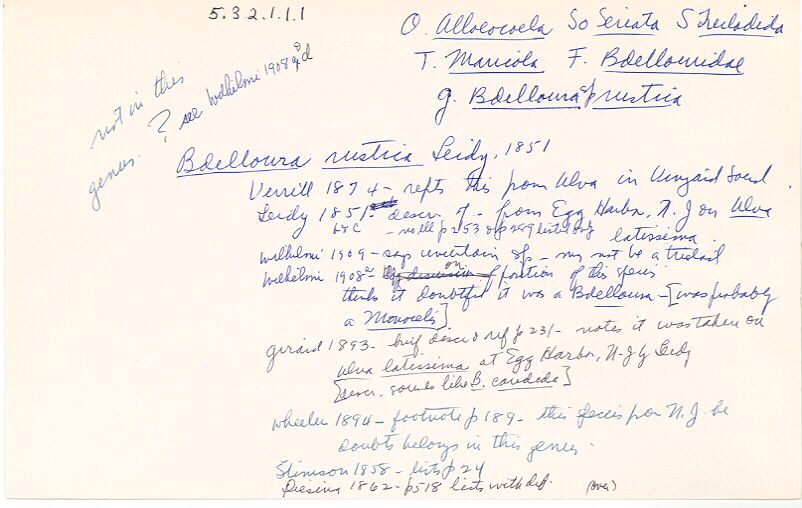 5.3 2.1.1.1
O. Alloeocoela So Seriata S Tricladida
T. Maricola F. Bdellouridae
g. Bdelloura sp rustica
not in this
genus. ? see Wilhelmi 1908
Bdelloura rustica Leidy, 1851
Verrill 1874 - repts this from Ulva in Vinyard Sound
Leidy 1851 - descr. of - from Egg Harbor, N. J on Ulva
latissima
Wilhelmi 1909 - says uncertain sp - may not be a triclad
Wilhelmi 1908a - discussion on position of this species
thinks it doubtful it was a Bdelloura - [was probably
a Monocelis]
Girard 1893 - brief descr & ref p 231 - notes it was taken on
Ulva latissima at Egg Harbor, N-J by Leidy
[descr. sounds like B. candida]
Wheeler 1894 - footnote p 189 - this species from N. J. he
doubts belongs in this genus.
Stimson 1858 - lists p 24
Diesing 1862 - p518 lists with def. (over)